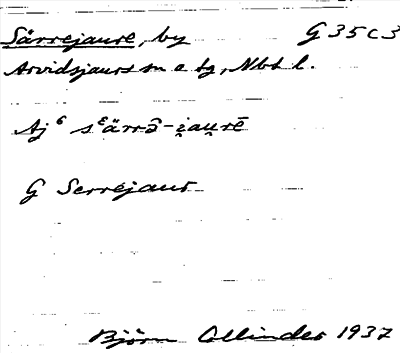 Särrejaure, by G 35 C 3
Arvidsjaurs sn o tg, Nbt l.
Aj⁶ sᵋärrɔ̄-i̯au̯rē
G Serrejaur
Björn Collinder 1937